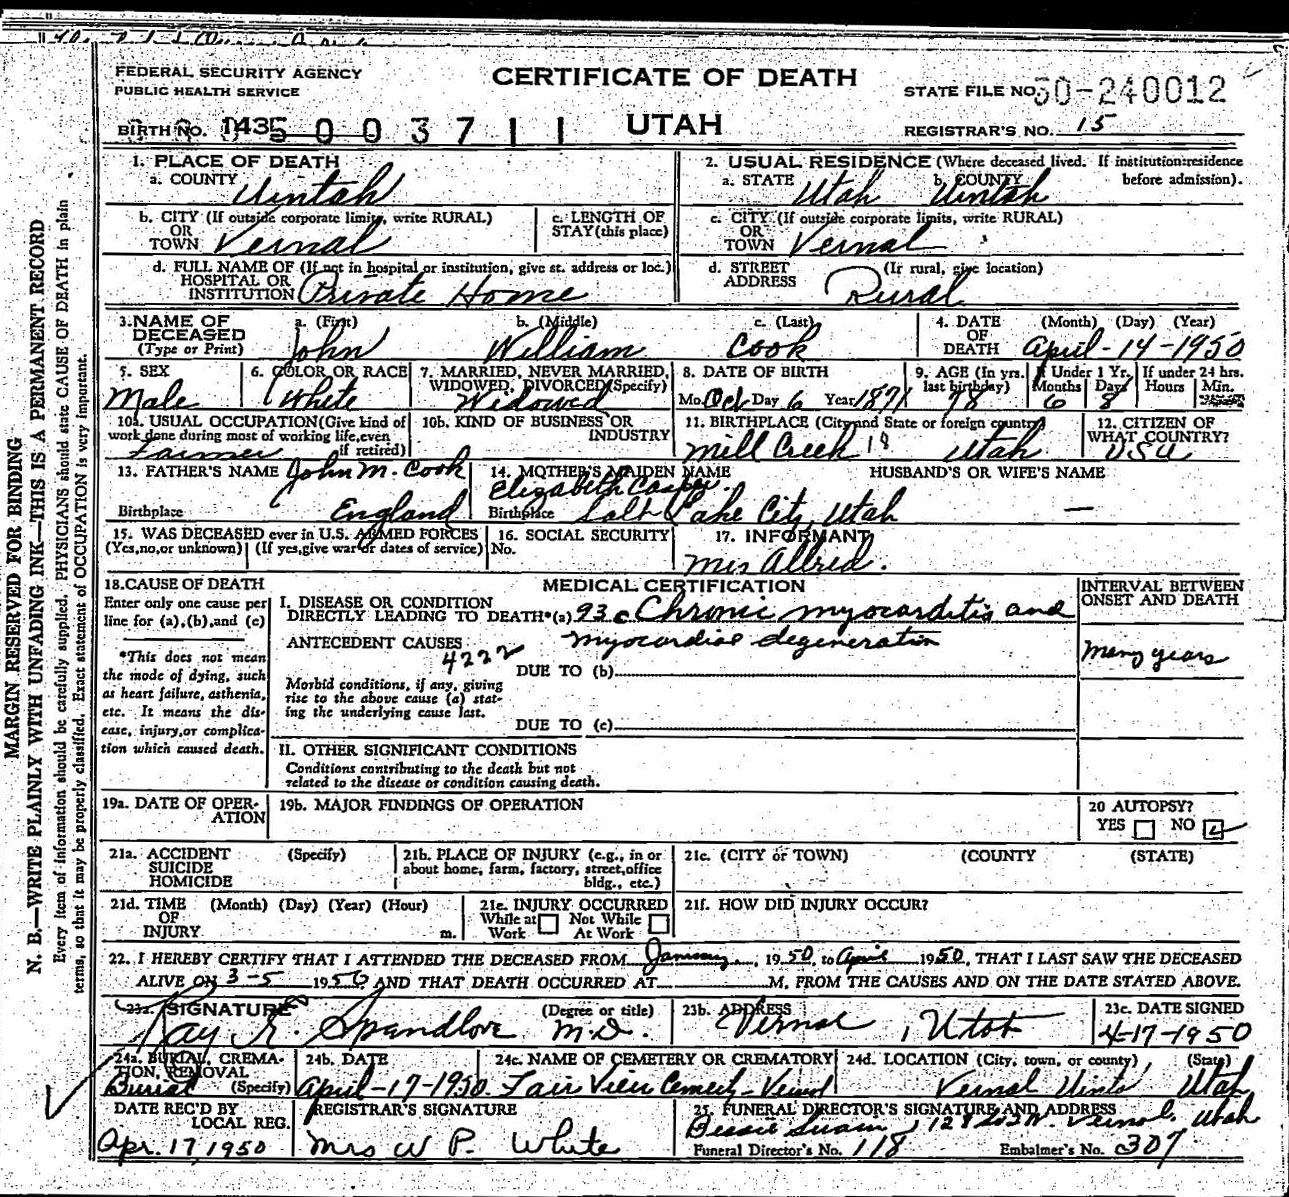 FEDERAL SECURITY AGENCY
PUBLIC HEALTH SERVICE
CERTIFICATE OF DEATH
STATE FILE NO. 50-240012
BIRTH NO. 1435 003711
UTAH
REGISTRAR'S NO. 15
MARGIN RESERVED FOR BINDING
N. B.—WRITE PLAINLY WITH UNFADING INK—THIS IS A PERMANENT RECORD
Every item of information should be carefully supplied. PHYSICIANS should state CAUSE OF DEATH in plain
terms, so that it may be properly classified. Exact statement of OCCUPATION is very important.
1. PLACE OF DEATH
a. COUNTY Uintah
2. USUAL RESIDENCE (Where deceased lived. If institution:residence
before admission).
a. STATE Utah b. COUNTY Uintah
b. CITY (If outside corporate limits, write RURAL)
OR
TOWN Vernal
c. LENGTH OF
STAY (this place)
c. CITY (If outside corporate limits, write RURAL)
OR
TOWN Vernal
d. FULL NAME OF (If not in hospital or institution, give st. address or loc.)
HOSPITAL OR
INSTITUTION Private Home
d. STREET (If rural, give location)
ADDRESS Rural
3. NAME OF
DECEASED
(Type or Print)
a. (First) b. (Middle) c. (Last)
John William Cook
4. DATE (Month) (Day) (Year)
OF
DEATH April-14-1950
5. SEX
Male
6. COLOR OR RACE
White
7. MARRIED, NEVER MARRIED,
WIDOWED, DIVORCED (Specify)
Widowed
8. DATE OF BIRTH
Mo. Oct Day 6 Year 1871
9. AGE (In yrs.
last birthday)
78
If Under 1 Yr.
Months Days
6 8
If under 24 hrs.
Hours Min.
10a. USUAL OCCUPATION (Give kind of
work done during most of working life, even
if retired)
Farmer
10b. KIND OF BUSINESS OR
INDUSTRY
11. BIRTHPLACE (City and State or foreign country)
Mill Creek 18 Utah
12. CITIZEN OF
WHAT COUNTRY?
USA
13. FATHER'S NAME John M. Cook
Birthplace England
14. MOTHER'S MAIDEN NAME
Elizabeth
Birthplace Salt Lake City, Utah
HUSBAND'S OR WIFE'S NAME
—
15. WAS DECEASED ever in U.S. ARMED FORCES
(Yes, no, or unknown) (If yes, give war or dates of service)
16. SOCIAL SECURITY
No.
17. INFORMANT
Mrs Allred.
18. CAUSE OF DEATH
Enter only one cause per
line for (a), (b), and (c)
*This does not mean
the mode of dying, such
as heart failure, asthenia,
etc. It means the dis-
ease, injury, or complica-
tion which caused death.
MEDICAL CERTIFICATION
I. DISEASE OR CONDITION
DIRECTLY LEADING TO DEATH*(a) 93c Chronic myocarditis and
myocardial degeneration
ANTECEDENT CAUSES
4222
DUE TO (b)
Morbid conditions, if any, giving
rise to the above cause (a) stat-
ing the underlying cause last.
DUE TO (c)
II. OTHER SIGNIFICANT CONDITIONS
Conditions contributing to the death but not
related to the disease or condition causing death.
INTERVAL BETWEEN
ONSET AND DEATH
Many years
19a. DATE OF OPER-
ATION
19b. MAJOR FINDINGS OF OPERATION
20 AUTOPSY?
YES NO
21a. ACCIDENT (Specify)
SUICIDE
HOMICIDE
21b. PLACE OF INJURY (e.g., in or
about home, farm, factory, street, office
bldg., etc.)
21c. (CITY or TOWN) (COUNTY (STATE)
21d. TIME (Month) (Day) (Year) (Hour)
OF
INJURY m.
21e. INJURY OCCURRED
While at Not While
Work At Work
21f. HOW DID INJURY OCCUR?
22. I HEREBY CERTIFY THAT I ATTENDED THE DECEASED FROM January, 1950, to April 1950, THAT I LAST SAW THE DECEASED
ALIVE ON 3-5 1950 AND THAT DEATH OCCURRED AT M. FROM THE CAUSES AND ON THE DATE STATED ABOVE.
23a. SIGNATURE (Degree or title)
Ray E. Spendlove M.D.
23b. ADDRESS
Vernal, Utah
23c. DATE SIGNED
4-17-1950
24a. BURIAL, CREMA-
TION, REMOVAL
(Specify)
Burial
24b. DATE
April-17-1950.
24c. NAME OF CEMETERY OR CREMATORY
Fair View Cemect-Vernal
24d. LOCATION (City, town, or county) (State)
Vernal Uinta Utah
DATE REC'D BY
LOCAL REG.
Apr. 17, 1950
REGISTRAR'S SIGNATURE
Mrs W P. White
25. FUNERAL DIRECTOR'S SIGNATURE AND ADDRESS
Bessie Swain, Vernal, Utah
Funeral Director's No. 118 Embalmer's No. 307